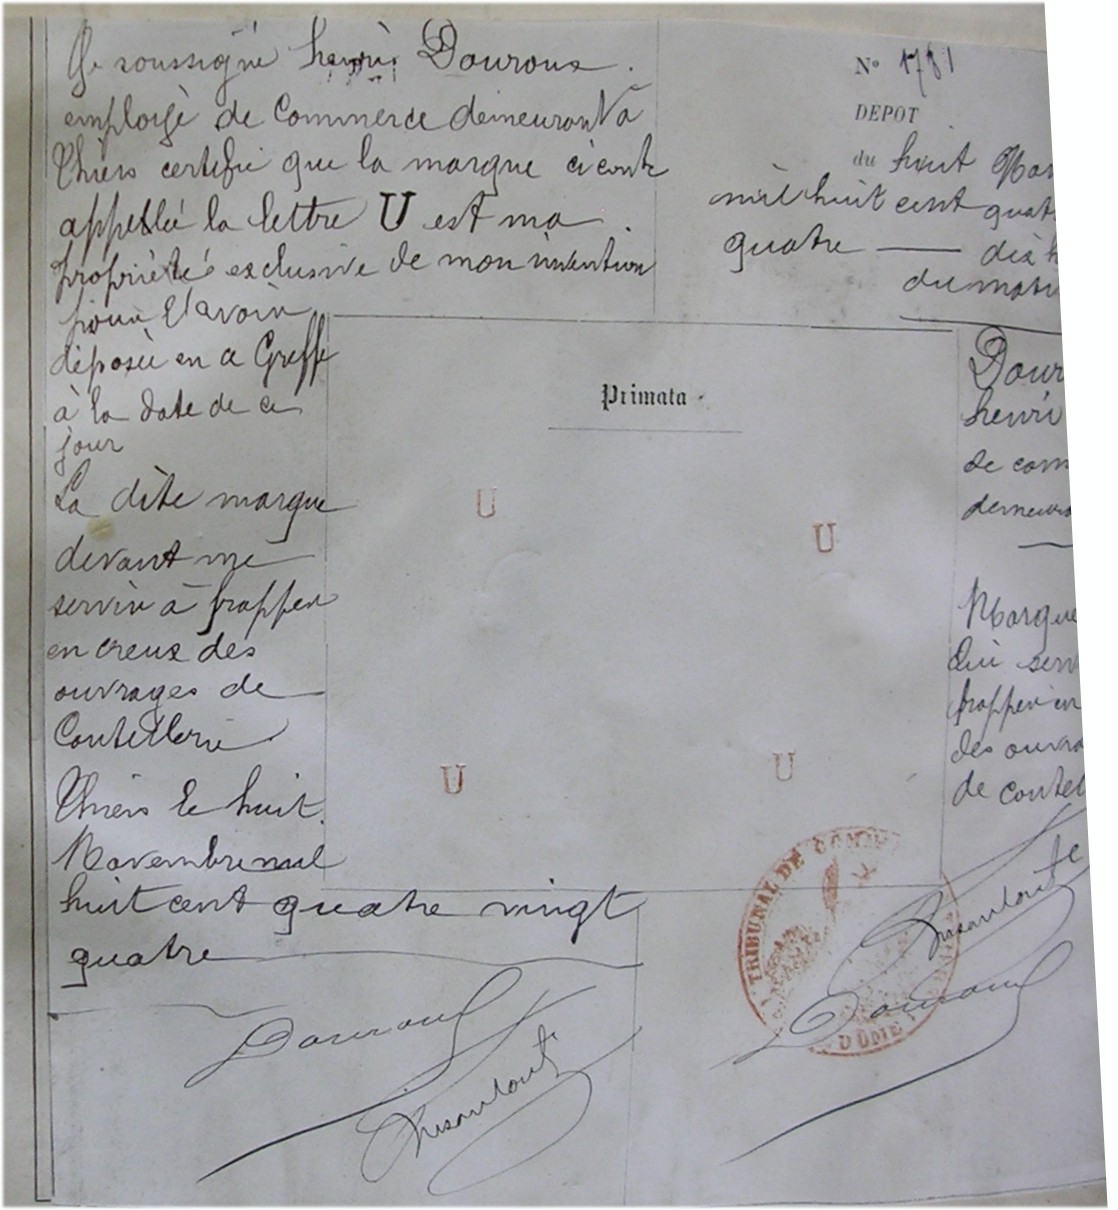 Je soussigné henri Douroux.
employé de Commerce demeurant à
Thiers certifie que la marque ci contre
appellée la lettre U est ma
propriété exclusive de mon invention
pour l'avoir
déposée en ce Greffe
à la date de ce
jour
La dite marque
devant me
servir à frapper
en creux des
ouvrages de
Coutellerie
Thiers le huit
Novembre mil
huit cent quatre vingt
quatre
Douroux
N° 1781
DEPOT
du huit Nov
mil huit cent quat
quatre — dix h
du mati
Primata
U
U
U
U
Dour
henri
de com
demeura
Marque
Qui serv
frapper en
des ouvra
de coutel
TRIBUNAL DE COMM
DÔME
Douroux